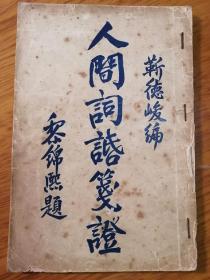 靳德峻編
人間詞話箋證
黎錦熙題